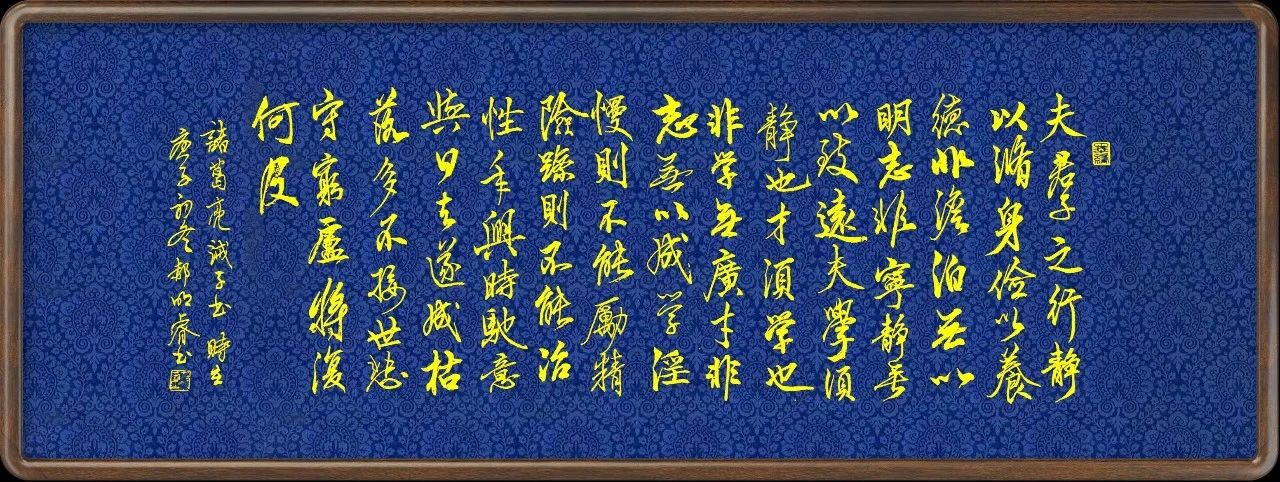 夫君子之行静
以脩身俭以養
德非澹泊无以
明志非寧静無
以致遠夫學須
静也才須学也
非学無廣才非
志無以成学淫
慢則不能勵精
險躁則不能治
性年與時馳意
與日去遂成枯
落多不接世悲
守窮廬將復
何及
諸葛亮誡子书 時在
庚子初冬郝明睿书